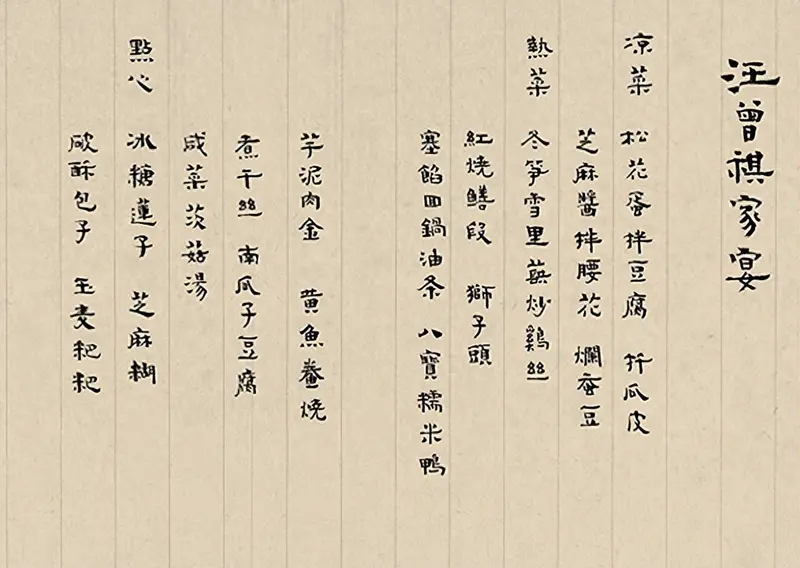 汪曾祺家宴
凉菜 松花蛋拌豆腐 扦瓜皮
芝麻醬拌腰花 爛蚕豆
熱菜 冬笋雪里蕻炒鷄丝
紅燒鱔段 獅子頭
塞餡回鍋油条 八寶糯米鴨
芋泥肉金 黄魚鲞燒
煮干丝 南瓜子豆腐
咸菜茨菇湯
點心 冰糖蓮子 芝麻糊
破酥包子 玉麦粑粑